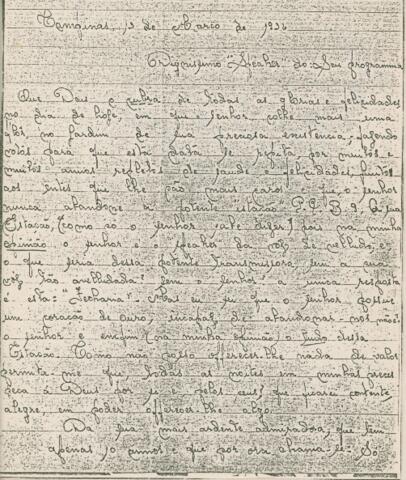 Campinas, 13 de Março de 1936
Dignissimo "Speaker" do: Seu programma
Que Deus o cubra de todas as glorias e felicidades
no dia de hoje, em que o senhor colhe mais uma
flôr no Jardim de sua preciosa existencia, fazendo
votos para que esta data se repita por muitos e
muitos annos repletos de saude e felicidades, junto
aos entes que lhe são mais caros e que o senhor
nunca abandone a potente "estação" P. R. B. 9. A sua
Estação, (como só o senhor sabe dizer) pois na minha
opinião o senhor é o speaker da voz de velludo, e
o que seria dessa potente transmissora, sem a sua
voz tão avelludada? Sem o senhor a unica resposta
é esta: "Fechava". Mas eu sei que o senhor possue
um coração de ouro, incapaz de abandonar-nos não é?
o senhor é enfim (na minha opinião) o tudo dessa
Estação. Como não posso offerecer-lhe nada de valor
permita-me que todas as noites em minhas preces
peça á Deus por si e pelos seus, que ficarei contente,
alegre, em poder offerecer-lhe algo.
Da sua mais ardente admiradora, que tem
apenas, 10 annos e que por ora chama-se: Só